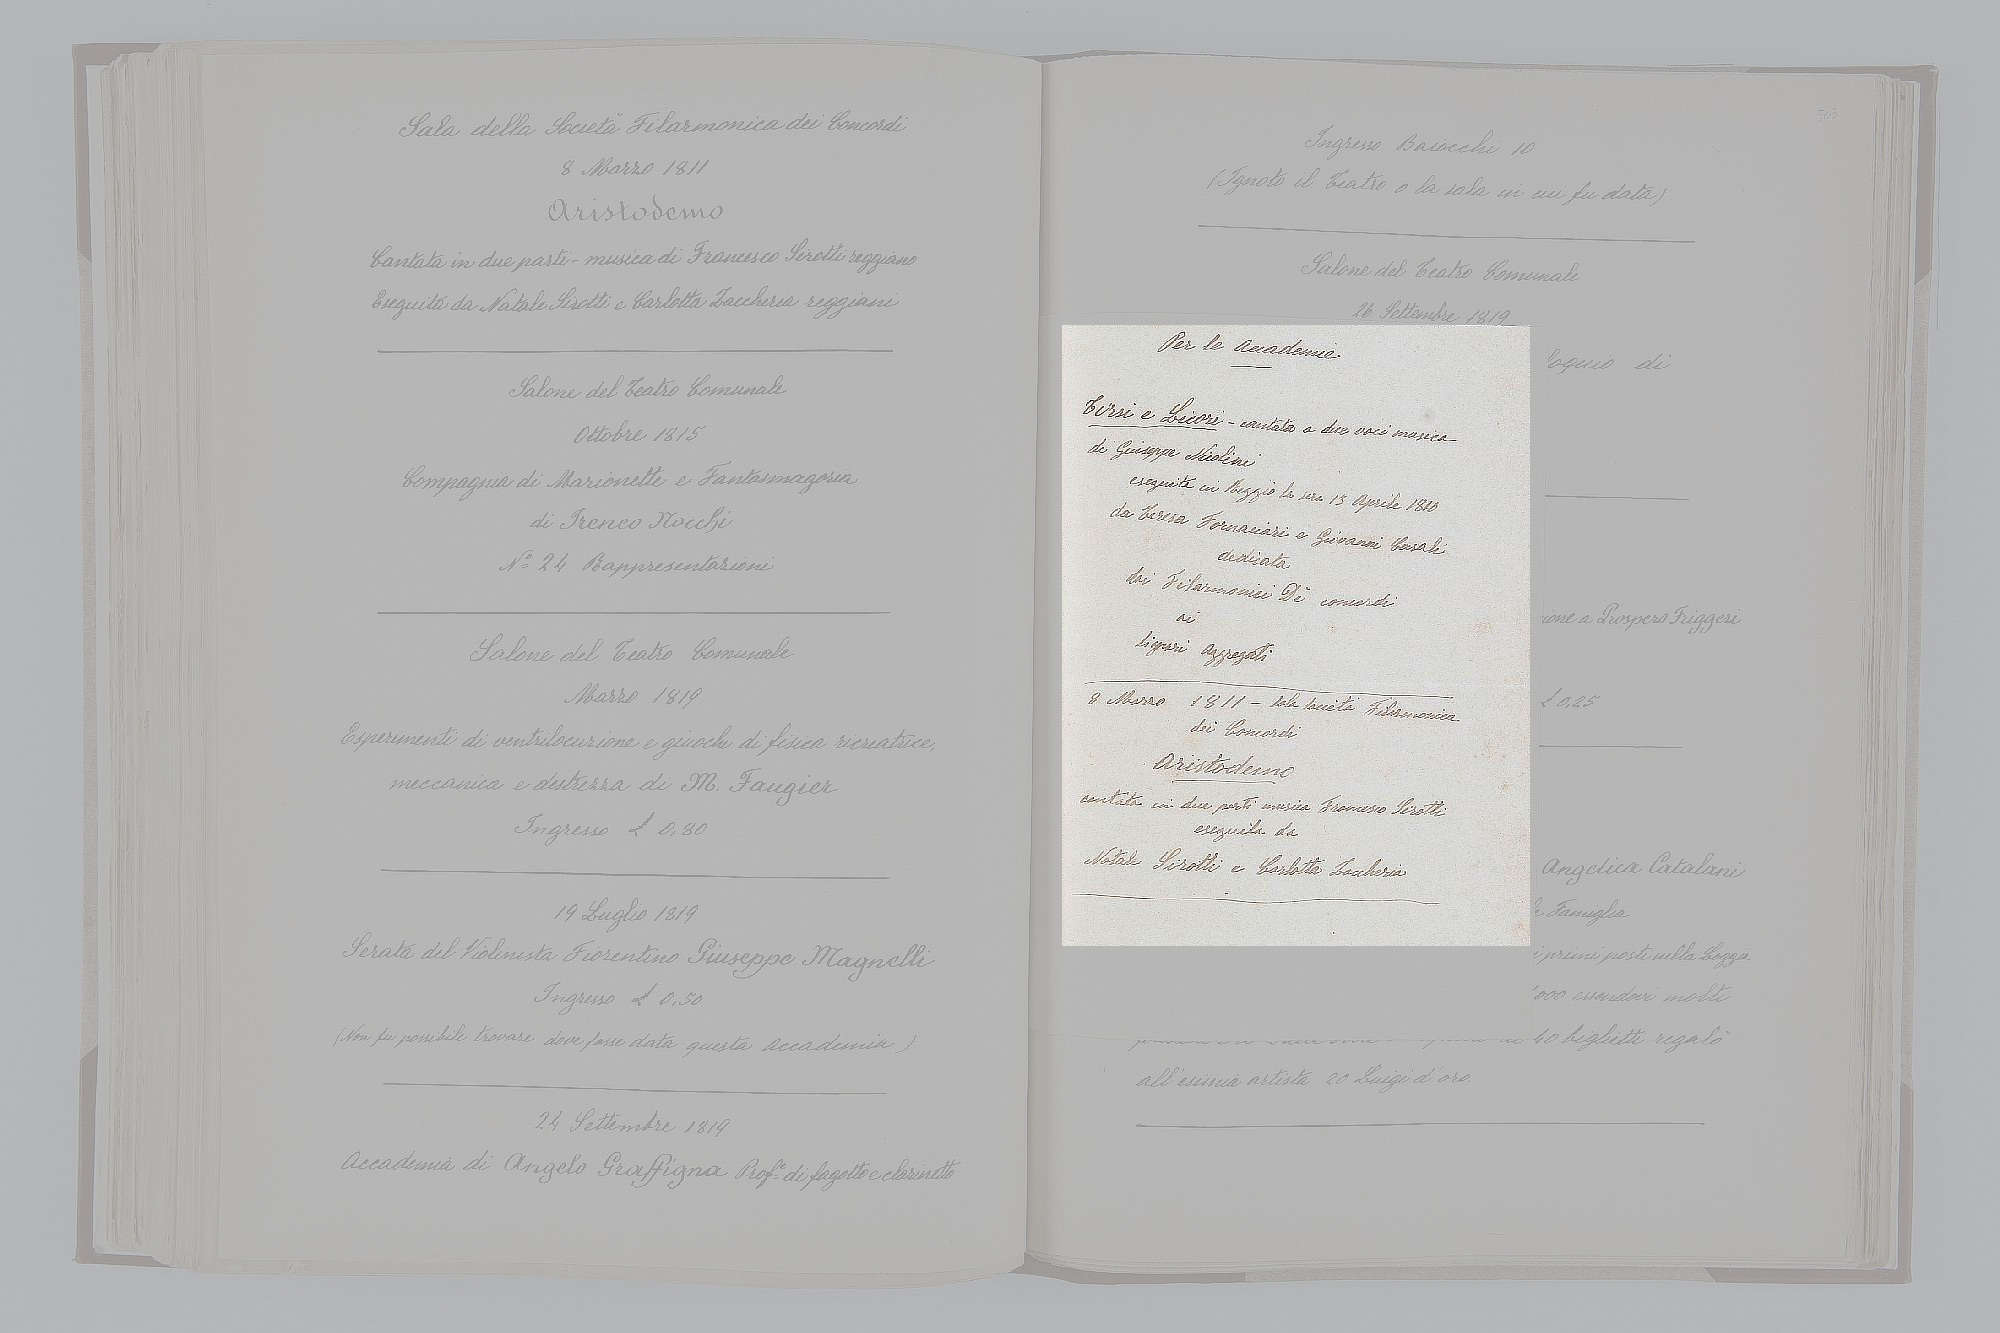 Sala della Società Filarmonica dei Concordi
8 Marzo 1811
Aristodemo
Cantata in due parti - musica di Francesco Sirotti reggiano
Eseguita da Natale Sirotti e Carlotta Zaccheria reggiani
Salone del Teatro Comunale
Ottobre 1815
Compagnia di Marionette e Fantasmagoria
di Ireneo Nocchi
N.o 24 Rappresentazioni
Salone del Teatro Comunale
Marzo 1819
Esperimenti di ventriloquzione e giuochi di fisica ricreatrice,
meccanica e destrezza di M. Faugier
Ingresso £ 0,80
19 Luglio 1819
Serata del Violinista Fiorentino Giuseppe Magnelli
Ingresso £ 0,50
(Non fu possibile trovare dove fosse data questa Accademia)
24 Settembre 1819
Accademia di Angelo Graffigna Prof.e di fagotto e clarinetto
Ingresso Baiocchi 10
(Ignoto il Teatro o la sala in cui fu data)
Salone del Teatro Comunale
26 Settembre 1819
Per le Accademie
Tirsi e Licori - cantata a due voci musica
di Giuseppe Nicolini
eseguita in Reggio la sera 15 Aprile 1810
da Teresa Fornaciari e Giovanni Casali
dedicata
dai Filarmonici De concordi
ai
signori Aggregati
8 Marzo 1811 - sala società Filarmonica
dei Concordi
Aristodemo
cantata in due parti musica Francesco Sirotti
eseguita da
Natale Sirotti e Carlotta Zaccheria
di
ione a Prospero Friggeri
£ 0,25
Angelica Catalani
Famiglia
i primi posti nella Loggia
000 essendovi molti
40 biglietti regalò
all'esimia artista 20 Luigi d'oro.